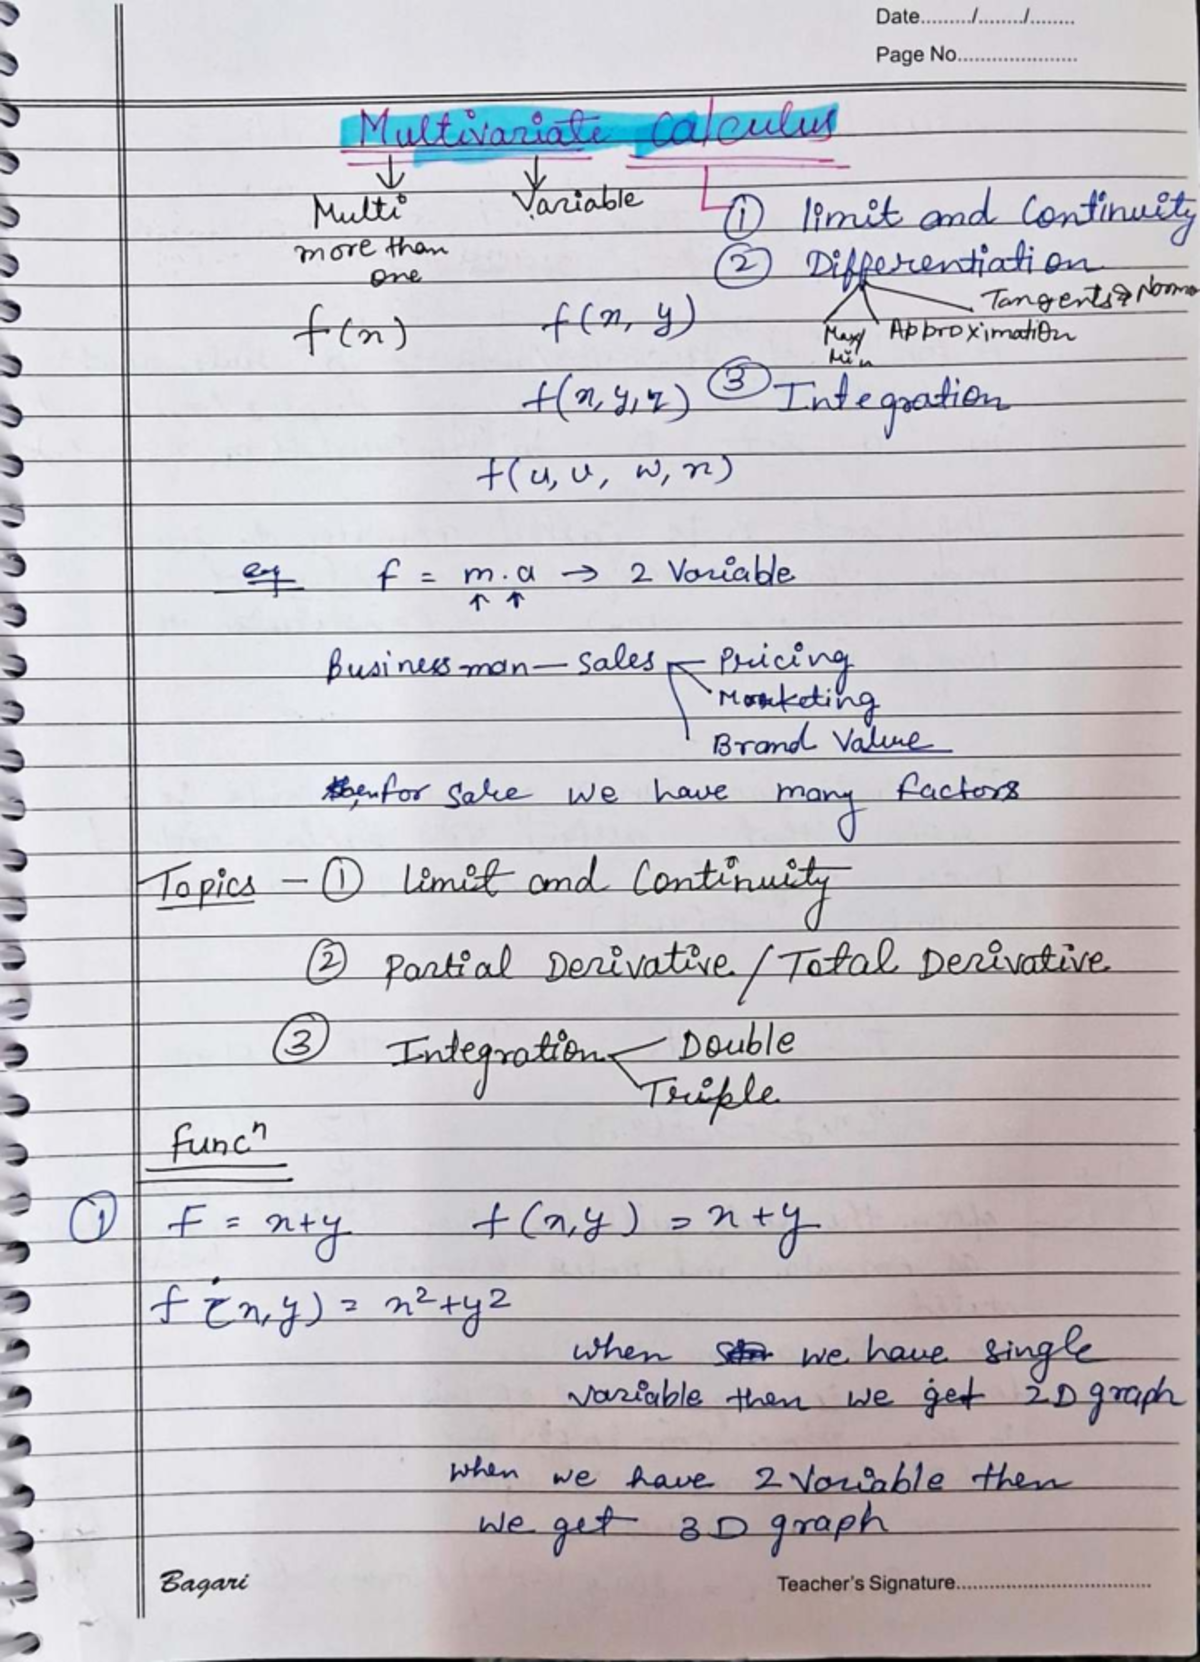 Date........./......../........
Page No.....................
Multivariate Calculus
Multi
more than
one
Variable
① limit and Continuity
② Differentiation
Tangents & Norma
Max/
Min
Approximation
f(x)
f(x, y)
f(x, y, z)
③ Integration
f(u, v, w, x)
eg f = m.a → 2 Variable
↑ ↑
Business man — Sales
Pricing
Marketing
Brand Value
for sake we have many factors
Topics - ① limit and Continuity
② Partial Derivative / Total Derivative
③ Integration
Double
Triple
funcⁿ
① F = x+y f(x,y) = x+y
f (x,y) = x²+y²
when we have single
variable then we get 2D graph
when we have 2 Variable then
we get 3D graph
Bagari
Teacher's Signature..................................